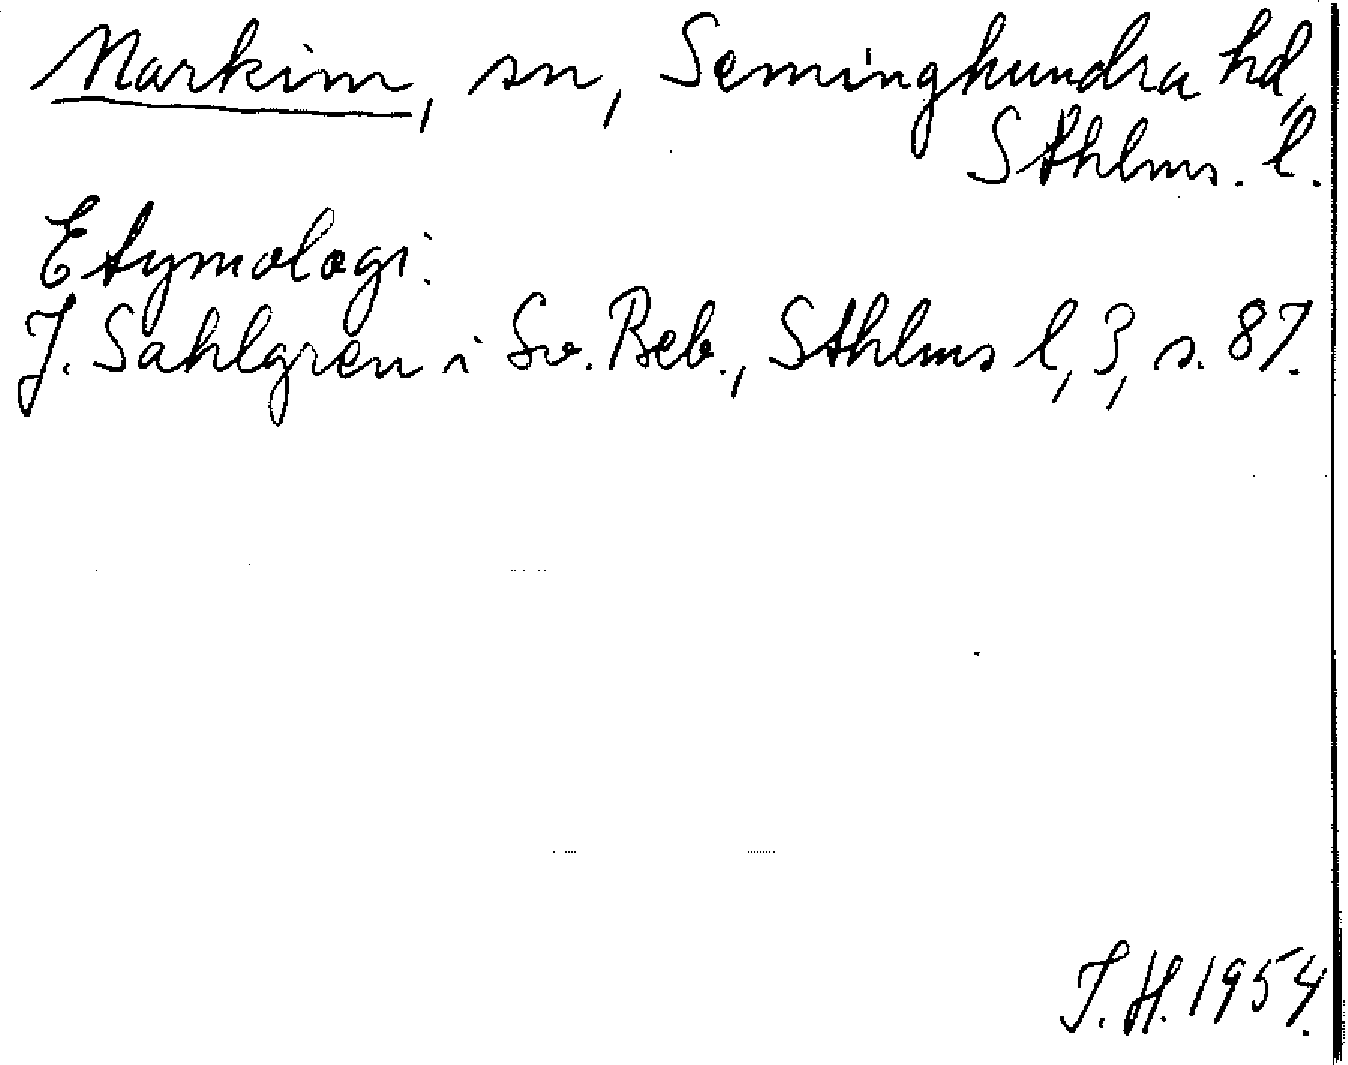 Markim, sn, Seminghundra hd,
Sthlms. l.
Etymologi:
J. Sahlgren i Sv. Beb., Sthlms l, 3, s. 87.
J. H. 1954.